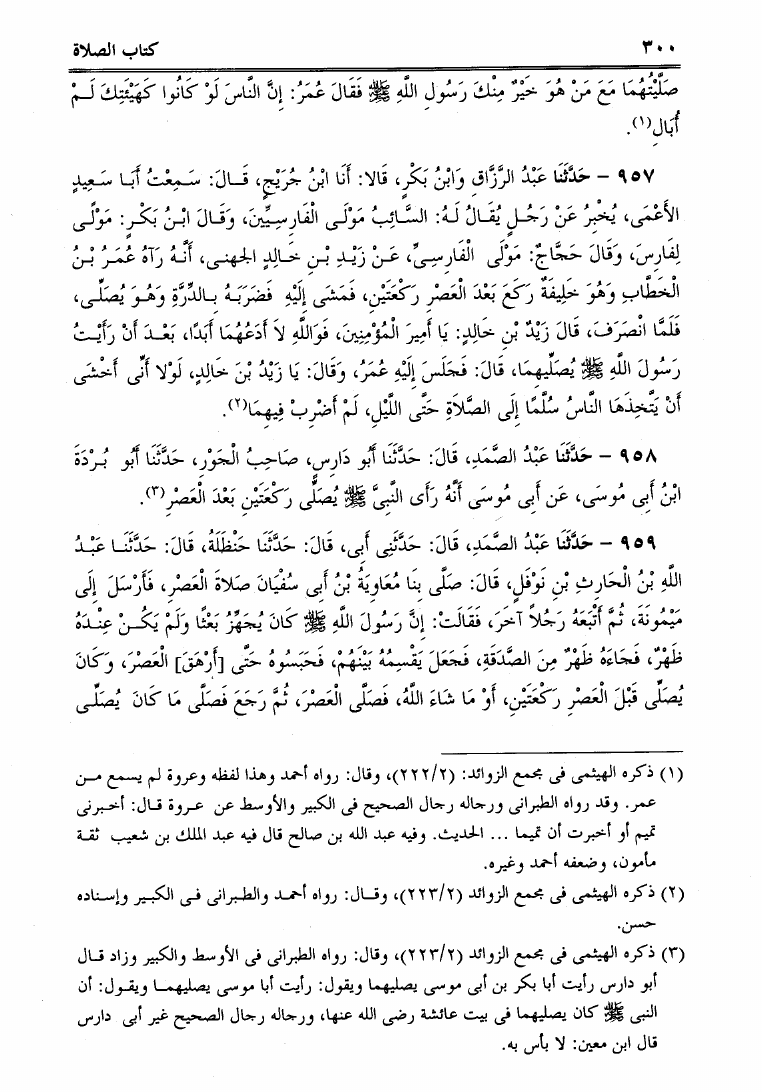 ٣٠٠ كتاب الصلاة
صَلَّيْتُهُمَا مَعَ مَنْ هُوَ خَيْرٌ مِنْكَ رَسُولِ اللَّهِ ﷺ فَقَالَ عُمَرُ: إِنَّ النَّاسَ لَوْ كَانُوا كَهَيْئَتِكَ لَمْ
أُبَالِ(١).
٩٥٧ – حَدَّثَنَا عَبْدُ الرَّزَّاقِ وَابْنُ بَكْرٍ، قَالا: أَنَا ابْنُ جُرَيْجٍ، قَالَ: سَمِعْتُ أَبَا سَعِيدٍ
الأَعْمَى، يُخْبِرُ عَنْ رَجُلٍ يُقَالُ لَهُ: السَّائِبُ مَوْلَى الْفَارِسِيِّينَ، وَقَالَ ابْنُ بَكْرٍ: مَوْلًى
لِفَارِسَ، وَقَالَ حَجَّاجٌ: مَوْلَى الْفَارِسِىِّ، عَنْ زَيْدِ بْنِ خَالِدٍ الجهنى، أَنَّهُ رَآهُ عُمَرُ بْنُ
الْخَطَّابِ وَهُوَ خَلِيفَةٌ رَكَعَ بَعْدَ الْعَصْرِ رَكْعَتَيْنِ، فَمَشَى إِلَيْهِ فَضَرَبَهُ بِالدِّرَّةِ وَهُوَ يُصَلِّى،
فَلَمَّا انْصَرَفَ، قَالَ زَيْدُ بْنِ خَالِدٍ: يَا أَمِيرَ الْمُؤْمِنِينَ، فَوَاللَّهِ لاَ أَدَعُهُمَا أَبَدًا، بَعْدَ أَنْ رَأَيْتُ
رَسُولَ اللَّهِ ﷺ يُصَلِّيهِمَا، قَالَ: فَجَلَسَ إِلَيْهِ عُمَرُ، وَقَالَ: يَا زَيْدُ بْنَ خَالِدٍ، لَوْلا أَنِّى أَخْشَى
أَنْ يَتَّخِذَهَا النَّاسُ سُلَّمًا إِلَى الصَّلاَةِ حَتَّى اللَّيْلِ، لَمْ أَضْرِبْ فِيهِمَا(٢).
٩٥٨ – حَدَّثَنَا عَبْدُ الصَّمَدِ، قَالَ: حَدَّثَنَا أَبُو دَارِسٍ، صَاحِبُ الْجَوْرِ، حَدَّثَنَا أَبُو بُرْدَةَ
ابْنُ أَبِى مُوسَى، عَن أَبِى مُوسَى أَنَّهُ رَأَى النَّبِىَّ ﷺ يُصَلِّى رَكْعَتَيْنِ بَعْدَ الْعَصْرِ(٣).
٩٥٩ – حَدَّثَنَا عَبْدُ الصَّمَدِ، قَالَ: حَدَّثَنِى أَبِى، قَالَ: حَدَّثَنَا حَنْظَلَةُ، قَالَ: حَدَّثَنَا عَبْدُ
اللَّهِ بْنُ الْحَارِثِ بْنِ نَوْفَلٍ، قَالَ: صَلَّى بِنَا مُعَاوِيَةُ بْنُ أَبِى سُفْيَانَ صَلاَةَ الْعَصْرِ، فَأَرْسَلَ إِلَى
مَيْمُونَةَ، ثُمَّ أَتْبَعَهُ رَجُلاً آخَرَ، فَقَالَتْ: إِنَّ رَسُولَ اللَّهِ ﷺ كَانَ يُجَهِّزُ بَعْثًا وَلَمْ يَكُنْ عِنْدَهُ
ظَهْرٌ، فَجَاءَهُ ظَهْرٌ مِنَ الصَّدَقَةِ، فَجَعَلَ يَقْسِمُهُ بَيْنَهُمْ، فَحَبَسُوهُ حَتَّى [أَرْهَقَ] الْعَصْرَ، وَكَانَ
يُصَلِّى قَبْلَ الْعَصْرِ رَكْعَتَيْنِ، أَوْ مَا شَاءَ اللَّهُ، فَصَلَّى الْعَصْرَ، ثُمَّ رَجَعَ فَصَلَّى مَا كَانَ يُصَلِّى
(١) ذكره الهيثمى فى مجمع الزوائد: (٢٢٢/٢)، وقال: رواه أحمد وهذا لفظه وعروة لم يسمع من
عمر. وقد رواه الطبرانى ورجاله رجال الصحيح فى الكبير والأوسط عن عروة قال: أخبرنى
تميم أو أخبرت أن تميما ... الحديث. وفيه عبد الله بن صالح قال فيه عبد الملك بن شعيب ثقة
مأمون، وضعفه أحمد وغيره.
(٢) ذكره الهيثمى فى مجمع الزوائد (٢٢٣/٢)، وقال: رواه أحمد والطبرانى فى الكبير وإسناده
حسن.
(٣) ذكره الهيثمى فى مجمع الزوائد (٢٢٣/٢)، وقال: رواه الطبرانى فى الأوسط والكبير وزاد قال
أبو دارس رأيت أبا بكر بن أبى موسى يصليهما ويقول: رأيت أبا موسى يصليهما ويقول: أن
النبى ﷺ كان يصليهما فى بيت عائشة رضى الله عنها، ورجاله رجال الصحيح غير أبى دارس
قال ابن معين: لا بأس به.